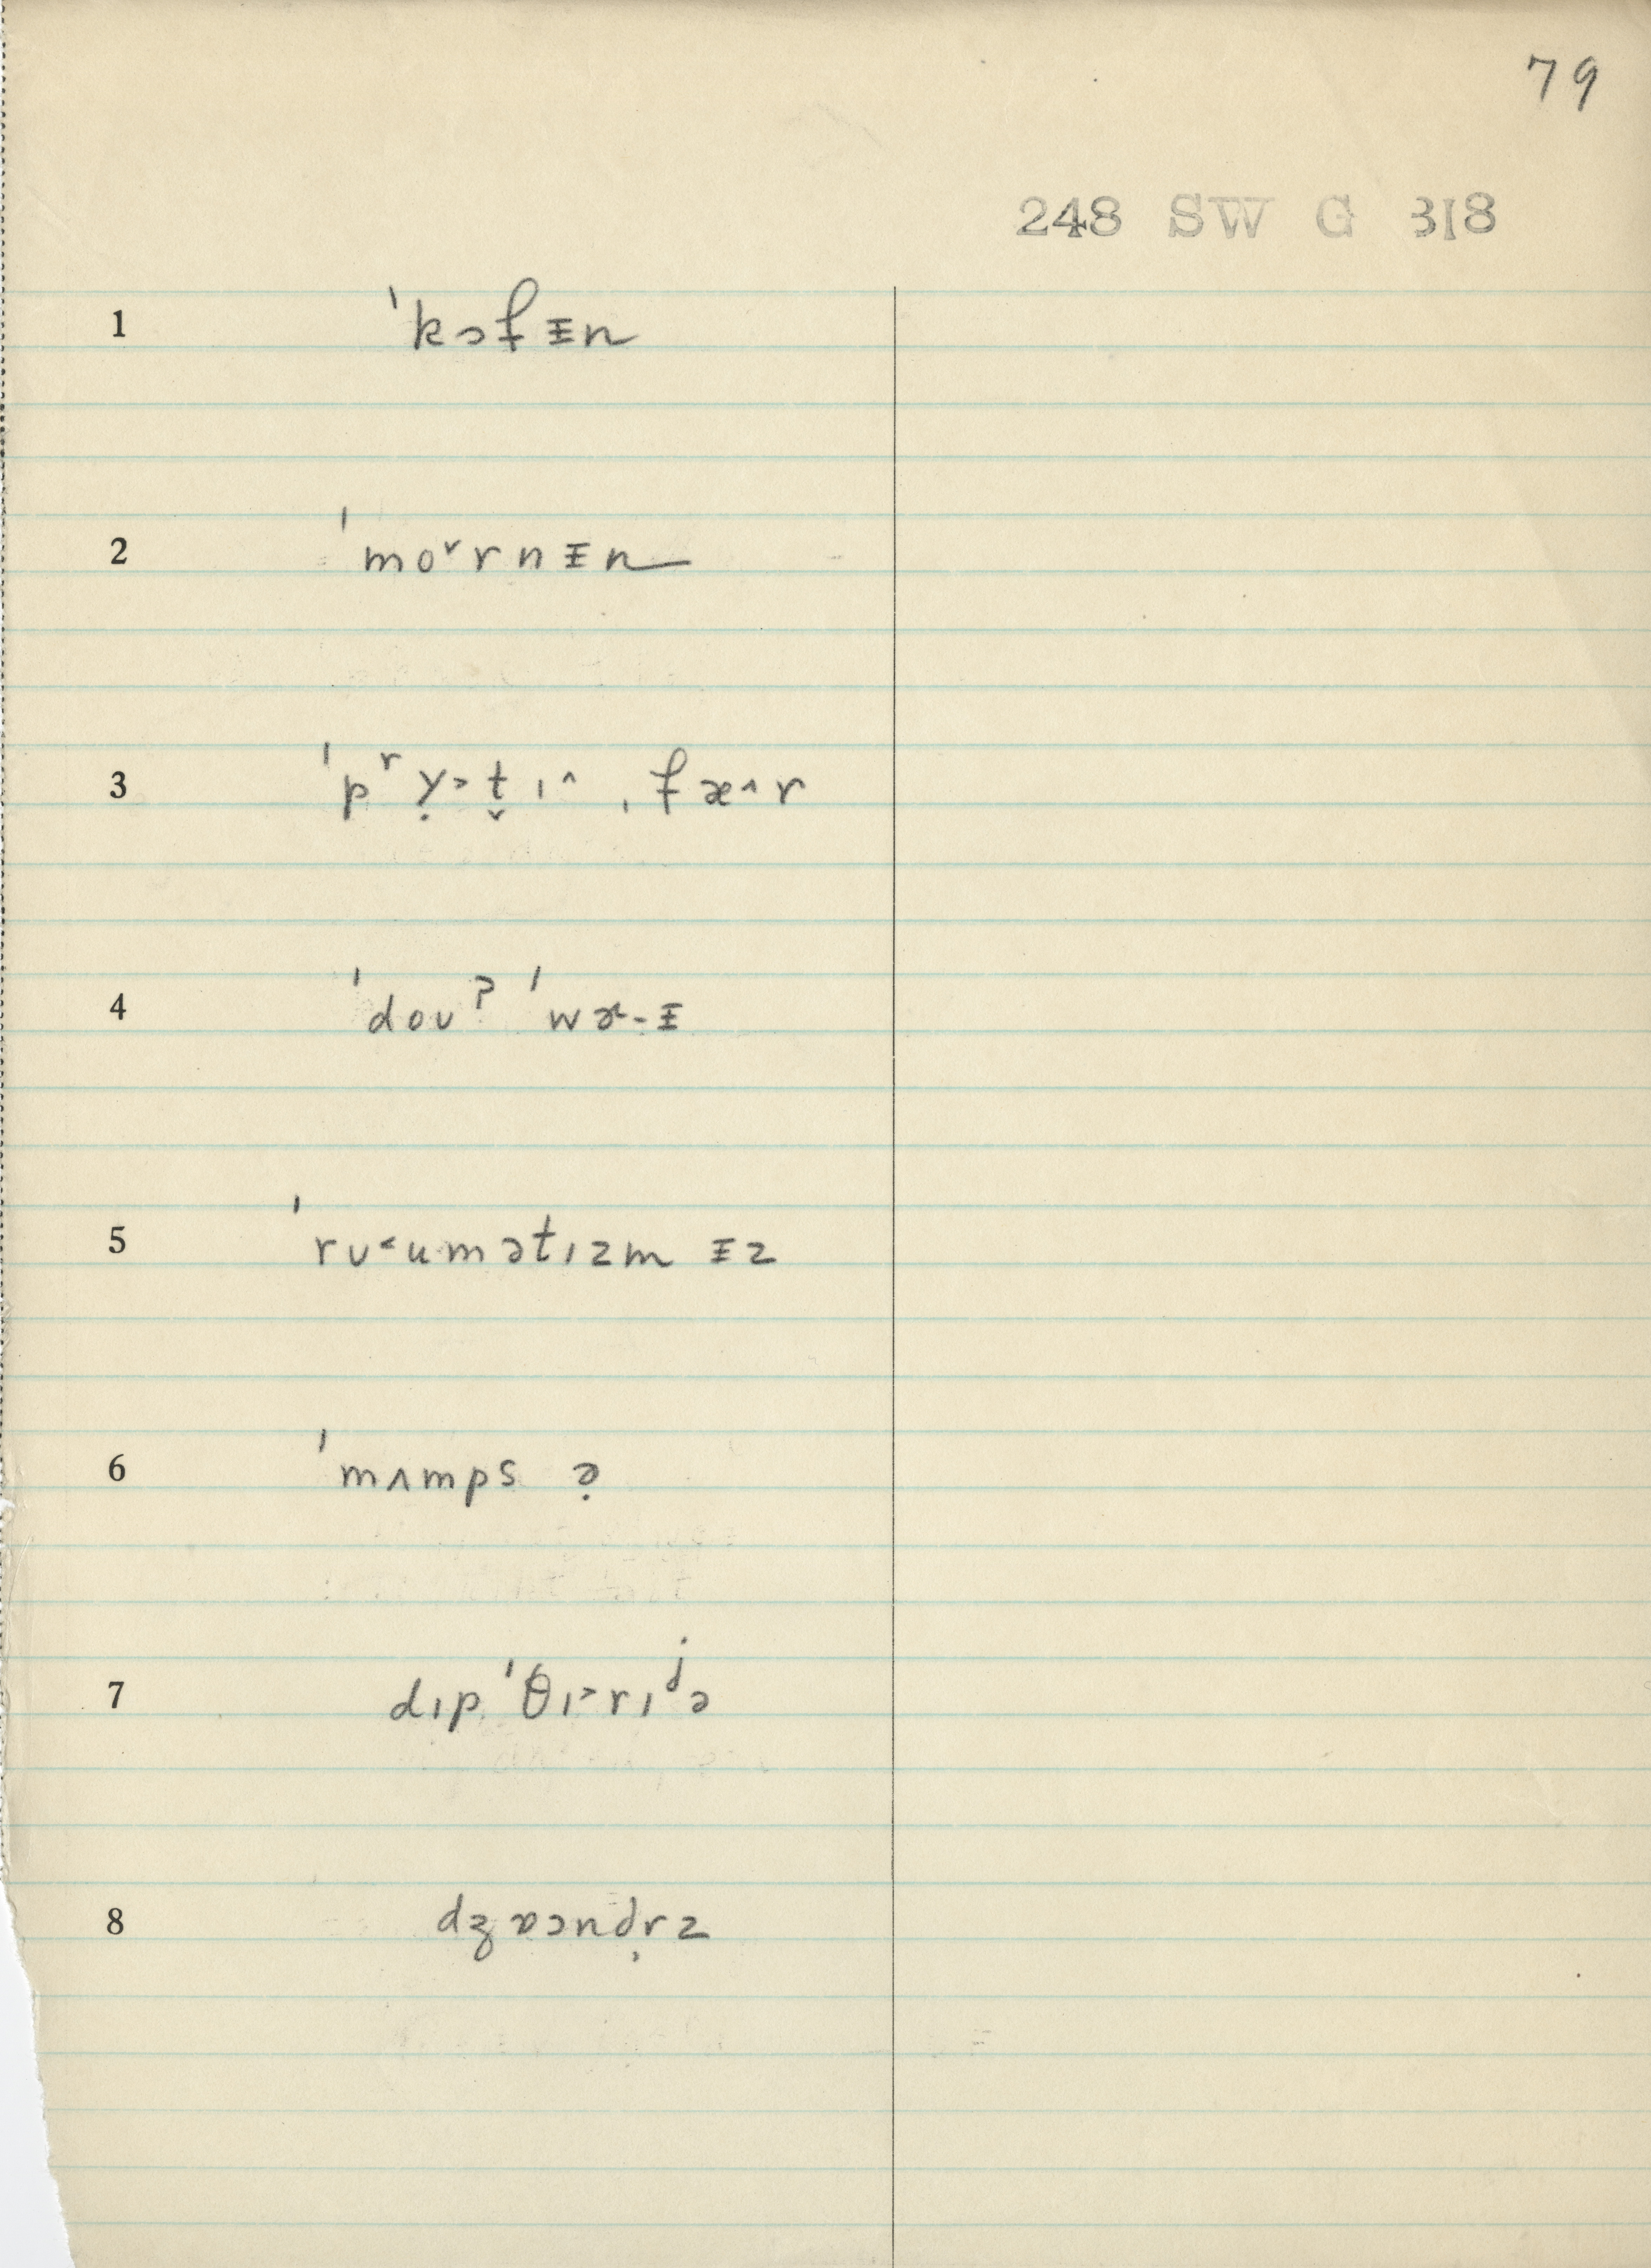 79
248 SW G 318
1 ˈkɔfᵻn
2 ˈmo˅rnᵻn
3 ˈpʳỵ˃t̬ɪ˄ ˌfæ˄r
4 ˈdoʊˀ ˈwɚ-ᵻ
5 ˈrʊ˂umətɪzm ᵻz
6 ˈmʌmps ə̣
7 dɪpˈθɪ˃rɪʲə
8 dʒɒɔnd̩rz